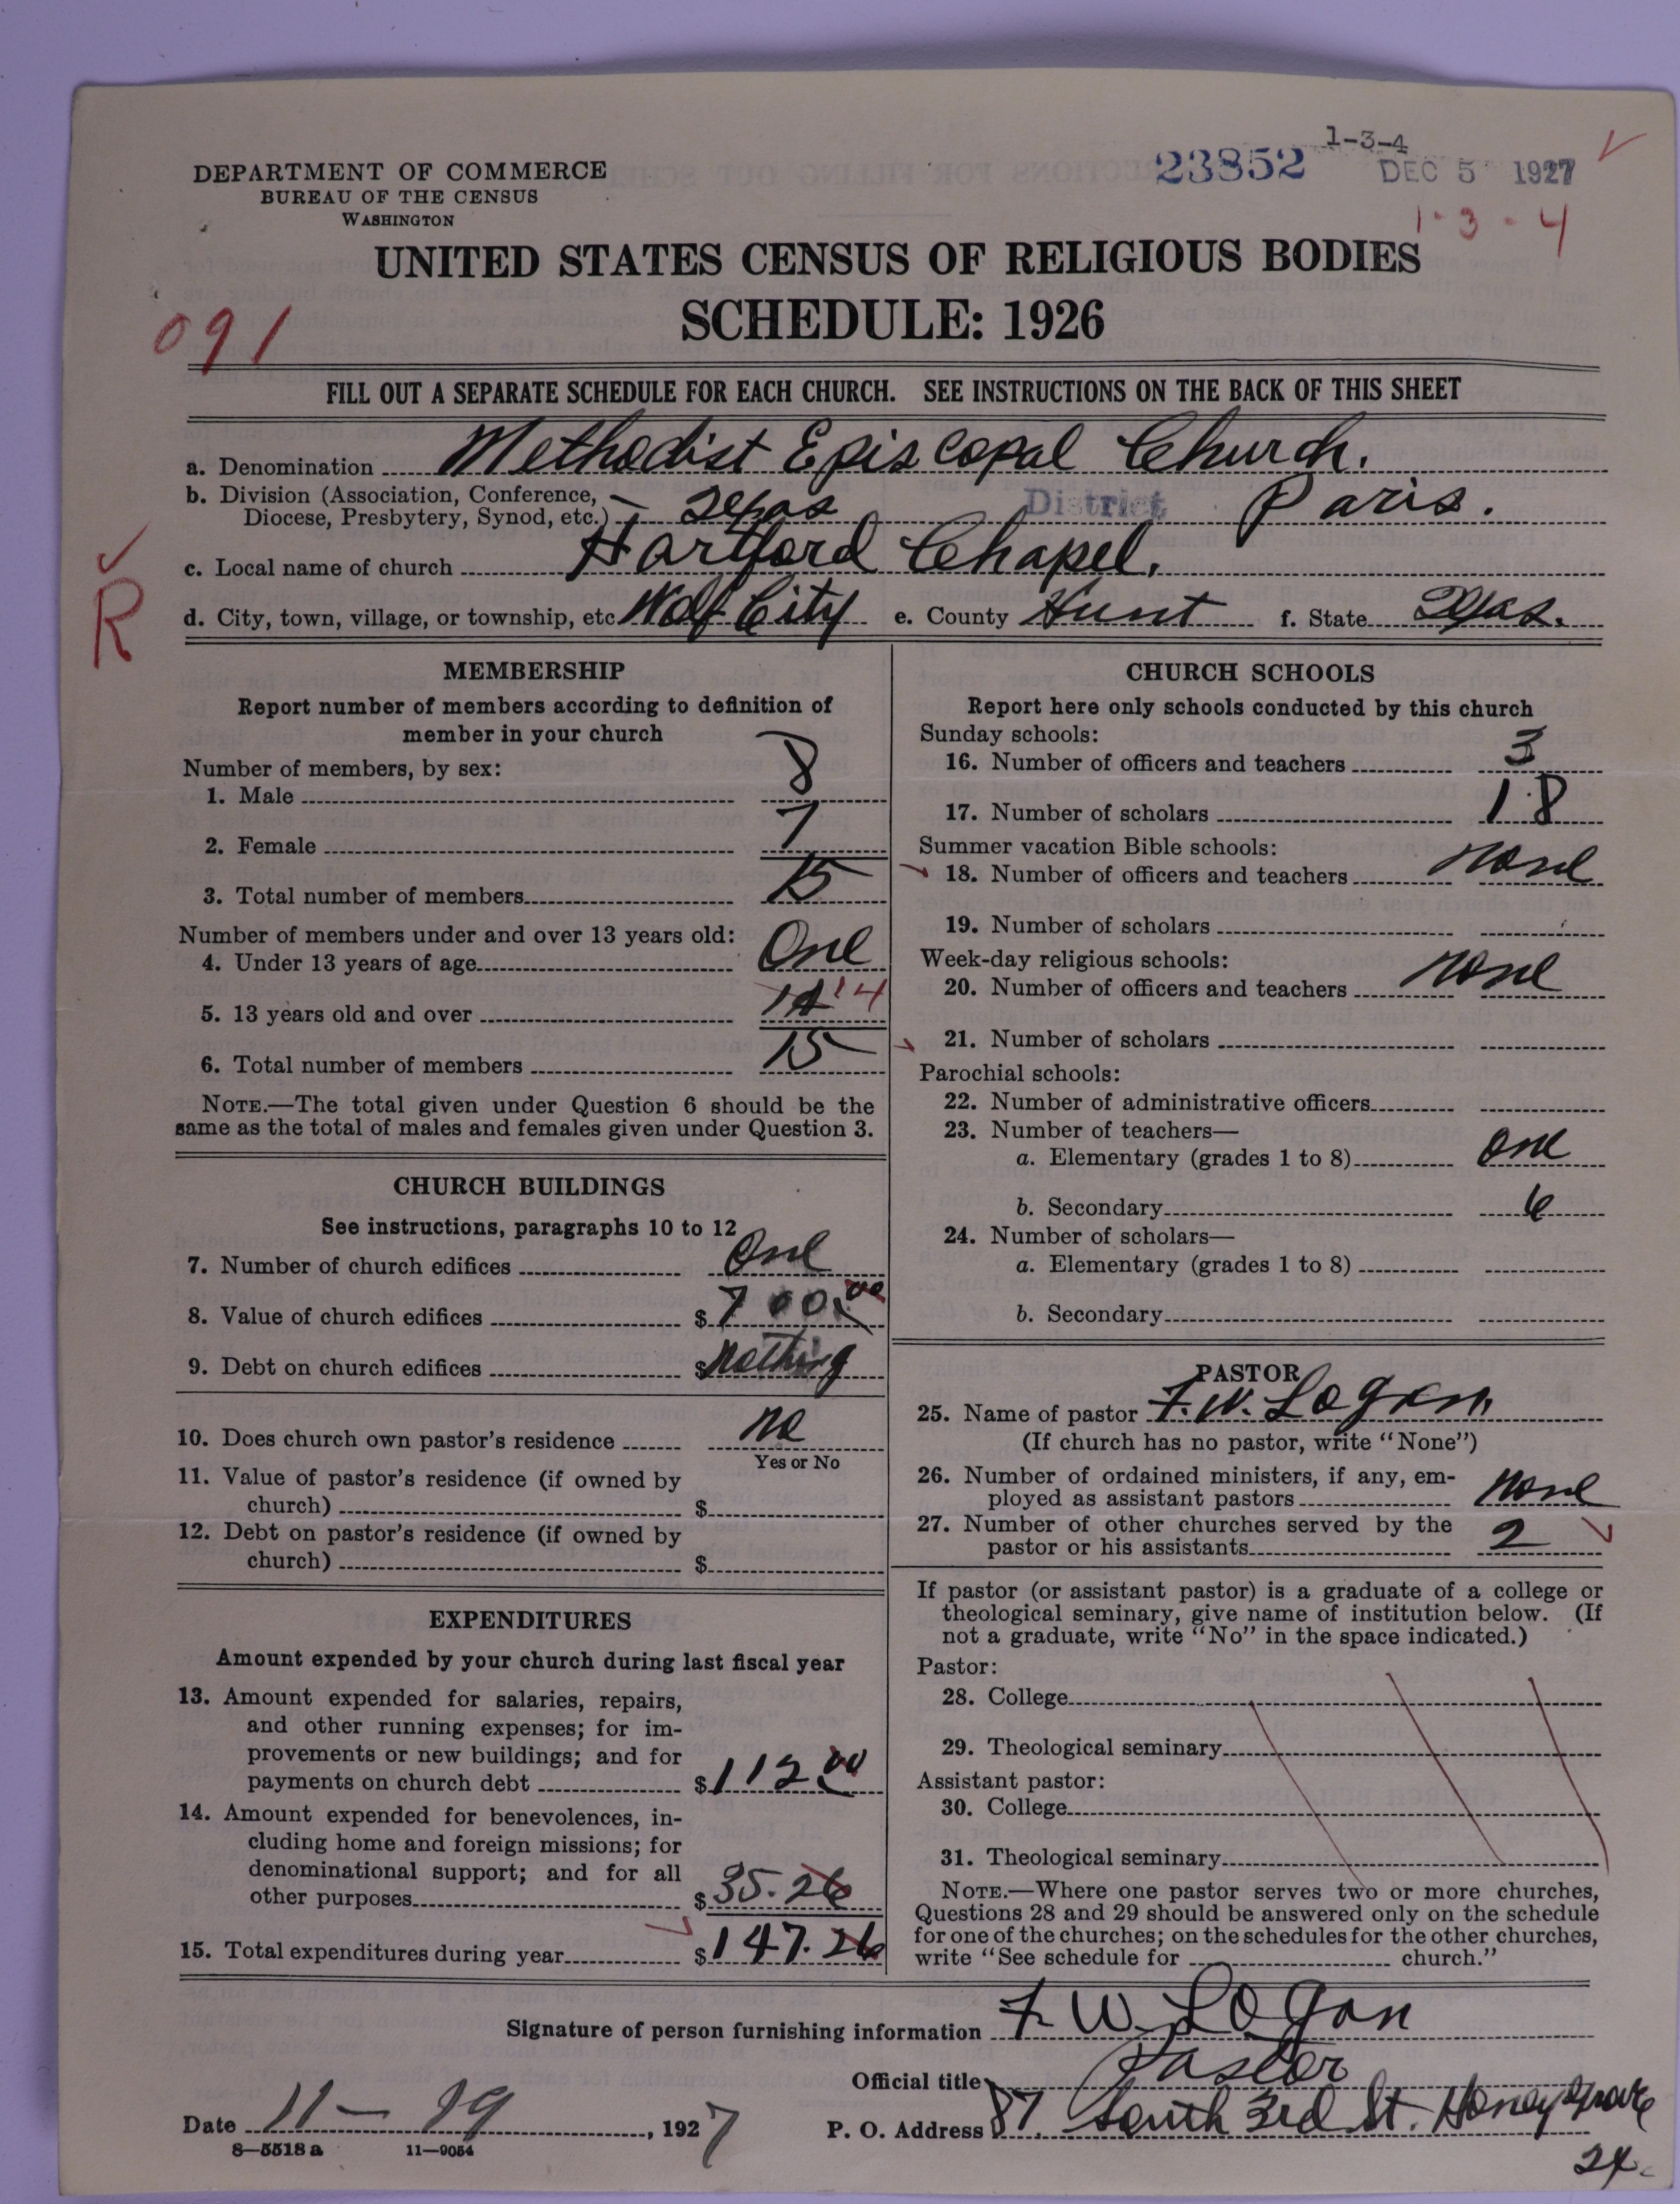 1-3-4
23852 DEC 5 1927
DEPARTMENT OF COMMERCE
BUREAU OF THE CENSUS
WASHINGTON
1-3-4
UNITED STATES CENSUS OF RELIGIOUS BODIES
SCHEDULE: 1926
091
FILL OUT A SEPARATE SCHEDULE FOR EACH CHURCH. SEE INSTRUCTIONS ON THE BACK OF THIS SHEET
a. Denomination Methodist Episcopal Church.
b. Division (Association, Conference, Diocese, Presbytery, Synod, etc.) Texas District Paris.
c. Local name of church Hartford Chapel.
R
d. City, town, village, or township, etc Wolf City e. County Hunt f. State Texas.
MEMBERSHIP
Report number of members according to definition of
member in your church
Number of members, by sex:
1. Male 8
2. Female 7
3. Total number of members 15
Number of members under and over 13 years old:
4. Under 13 years of age One
5. 13 years old and over 14 14
6. Total number of members 15
NOTE.—The total given under Question 6 should be the
same as the total of males and females given under Question 3.
CHURCH BUILDINGS
See instructions, paragraphs 10 to 12
7. Number of church edifices One
8. Value of church edifices $700.00
9. Debt on church edifices $Nothing
10. Does church own pastor's residence No
Yes or No
11. Value of pastor's residence (if owned by
church) $
12. Debt on pastor's residence (if owned by
church) $
EXPENDITURES
Amount expended by your church during last fiscal year
13. Amount expended for salaries, repairs,
and other running expenses; for im-
provements or new buildings; and for
payments on church debt $112.00
14. Amount expended for benevolences, in-
cluding home and foreign missions; for
denominational support; and for all
other purposes $35.26
15. Total expenditures during year $147.26
CHURCH SCHOOLS
Report here only schools conducted by this church
Sunday schools:
16. Number of officers and teachers 3
17. Number of scholars 18
Summer vacation Bible schools:
18. Number of officers and teachers None
19. Number of scholars
Week-day religious schools:
20. Number of officers and teachers None
21. Number of scholars
Parochial schools:
22. Number of administrative officers
23. Number of teachers—
a. Elementary (grades 1 to 8) One
b. Secondary 6
24. Number of scholars—
a. Elementary (grades 1 to 8)
b. Secondary
PASTOR
25. Name of pastor F. W. Logan.
(If church has no pastor, write "None")
26. Number of ordained ministers, if any, em-
ployed as assistant pastors None
27. Number of other churches served by the
pastor or his assistants 2
If pastor (or assistant pastor) is a graduate of a college or
theological seminary, give name of institution below. (If
not a graduate, write "No" in the space indicated.)
Pastor:
28. College
29. Theological seminary
Assistant pastor:
30. College
31. Theological seminary
NOTE.—Where one pastor serves two or more churches,
Questions 28 and 29 should be answered only on the schedule
for one of the churches; on the schedules for the other churches,
write "See schedule for church."
Signature of person furnishing information F W Logan
Official title Pastor
Date 11-19, 1927 P. O. Address 87. South 3rd St. Honey Grove
8-5518a 11-9054